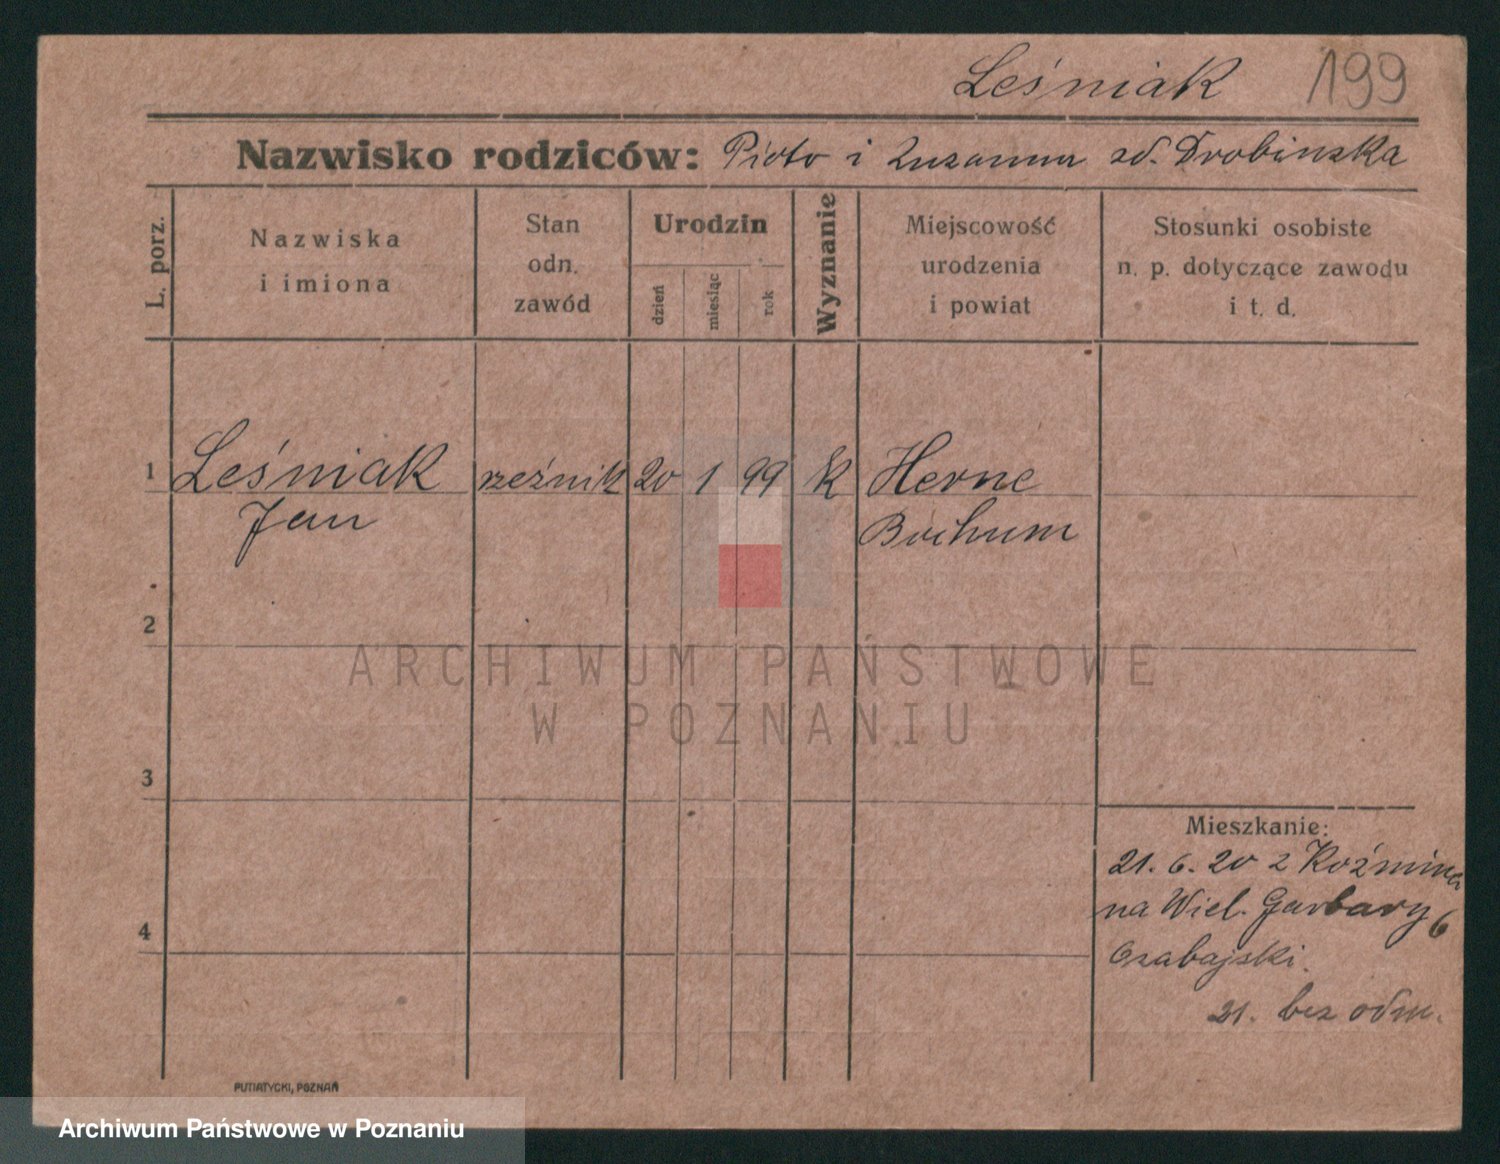 Leśniak 199
Nazwisko rodziców: Piotr i Zuzanna zd. Drobinska
L. porz.
Nazwiska
i imiona
Stan
odn.
zawód
Urodzin
dzień
miesiąc
rok
Wyznanie
Miejscowość
urodzenia
i powiat
Stosunki osobiste
n. p. dotyczące zawodu
i t. d.
1 Leśniak rzeźnik 20 1 99 k Herne
Jan Bochum
2
3
4
Mieszkanie:
21. 6. 20 z Koźmina
na Wiel. Garbary 6
Czabajski.
21. bez odm.
PUTIATYCKI, POZNAŃ
ARCHIWUM PAŃSTWOWE
W POZNANIU
Archiwum Państwowe w Poznaniu